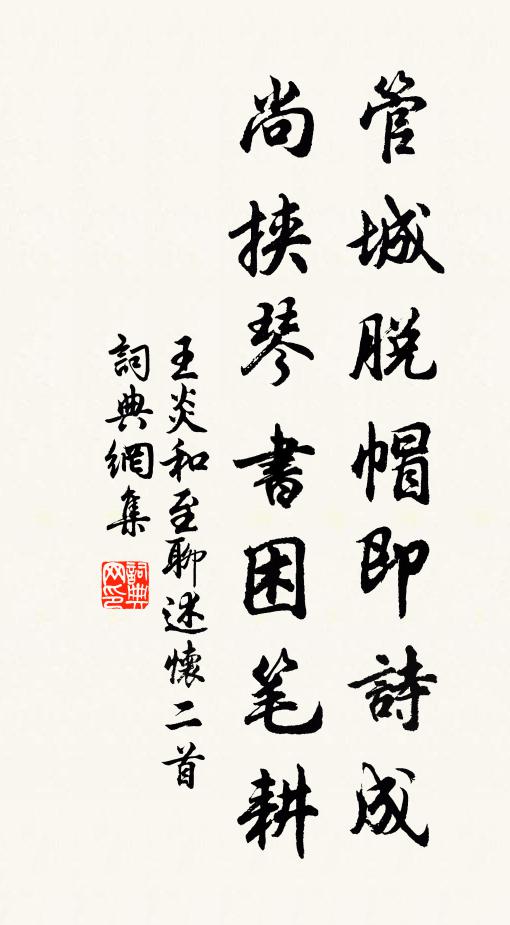 管城脱帽即詩成
尚挟琴書困笔耕
王炎和至聊述懷二首
詞典網集
詞典网印